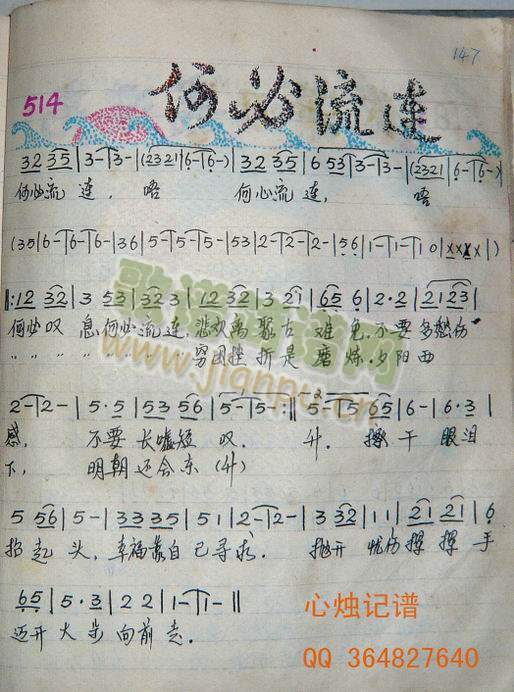 147
514
何必流连
3 2 3 5 | 3 - | 3 - | (2 3 2 1 | 6 - | 6 -) | 3 2 3 5 | 6 5 3 | 3 - | 3 - | (2 3 2 1 | 6 - | 6 -)
何必流 连, 唔 何必流 连, 唔
(3 5 | 6 - | 6 - | 6 - | 3 6 | 5 - | 5 - | 5 - | 5 3 | 2 - | 2 - | 2 - | 5 6 | 1 - | 1 - | 1 0 | x x x x | )
‖: 1 2 3 2 | 3 5 3 | 3 2 3 | 1 2 3 2 | 3 2 1 | 6 5 6 | 2 · 2 | 2 1 2 3 |
何必叹 息,何必流连,悲欢离聚古 难免,不要 多愁伤
〃 〃 〃 〃 〃 〃 〃 穷困挫 折是 磨炼,夕阳西
2 - | 2 - | 5 · 5 | 5 3 5 6 | 5 - | 5 - :‖ 5 - | 5 6 5 | 6 - | 6 · 3 |
感, 不要 长嘘短 叹. 升. 擦干 眼泪
下, 明朝 还会东 (升)
5 5 6 | 5 - | 3 3 3 5 | 5 1 | 2 - | 2 - | 3 3 2 | 1 1 | 2 1 2 1 | 6
抬起 头, 幸福靠自己寻求. 抛开 忧伤挥 挥 手
6 5 | 5 · 3 | 2 2 | 1 - | 1 - ‖
迈开 大 步 向前 走.
心烛记谱
QQ 364827640
歌谱简谱网
www.jianpu.cn